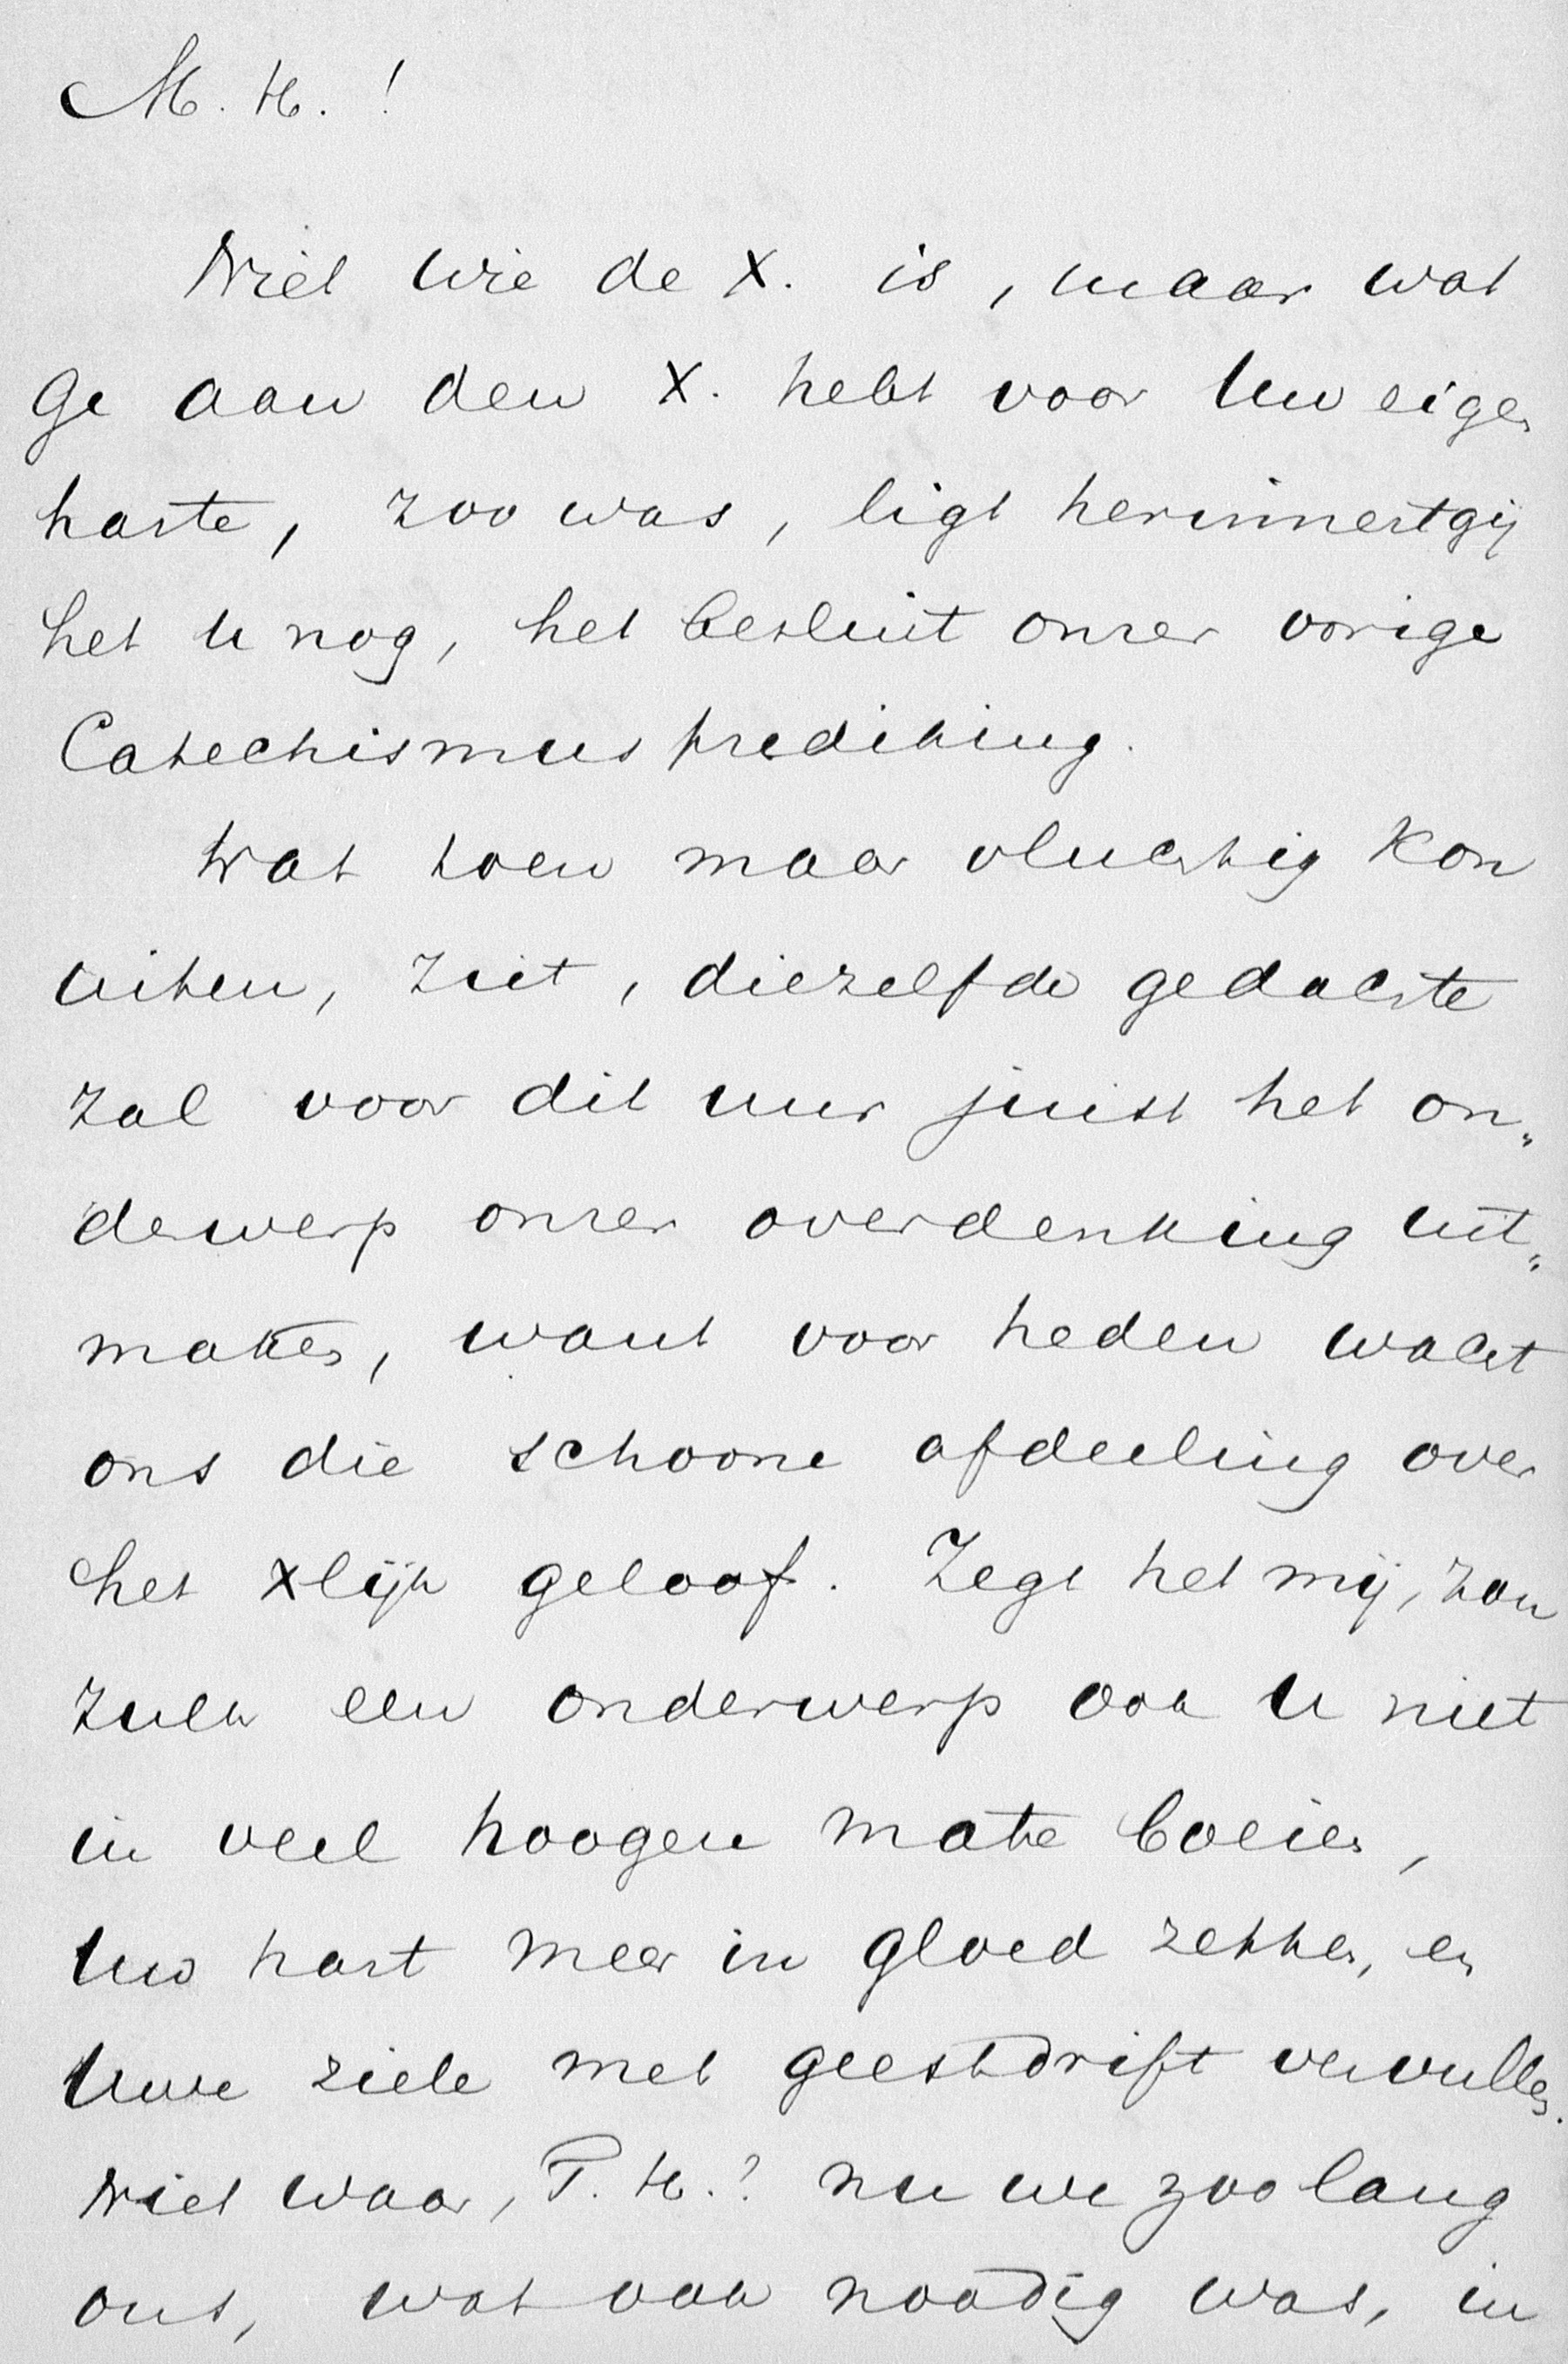 M. H. !
Niet wie de X. is, maar wat
Ge aan den X. hebt voor Uw eigen
harte, zoo was, ligt herinnert gij
het U nog, het besluit onzer vorige
Catechismus prediking.
Wat toen maar vluchtig kon
uiten, ziet, diezelfde gedachte
zal voor dit uur juist het on„
derwerp onzer overdenking uit„
maken, want voor heden wacht
ons die schoone afdeeling over
het Xlijk geloof. Zegt het mij, zou
zulk een onderwerp ook U niet
in veel hoogere mate boeien,
Uw hart meer in gloed zetten, en
Uwe ziele met geestdrift vervullen.
Niet waar, T. H.? nu we zoo lang
ons, wat ook noodig was, in